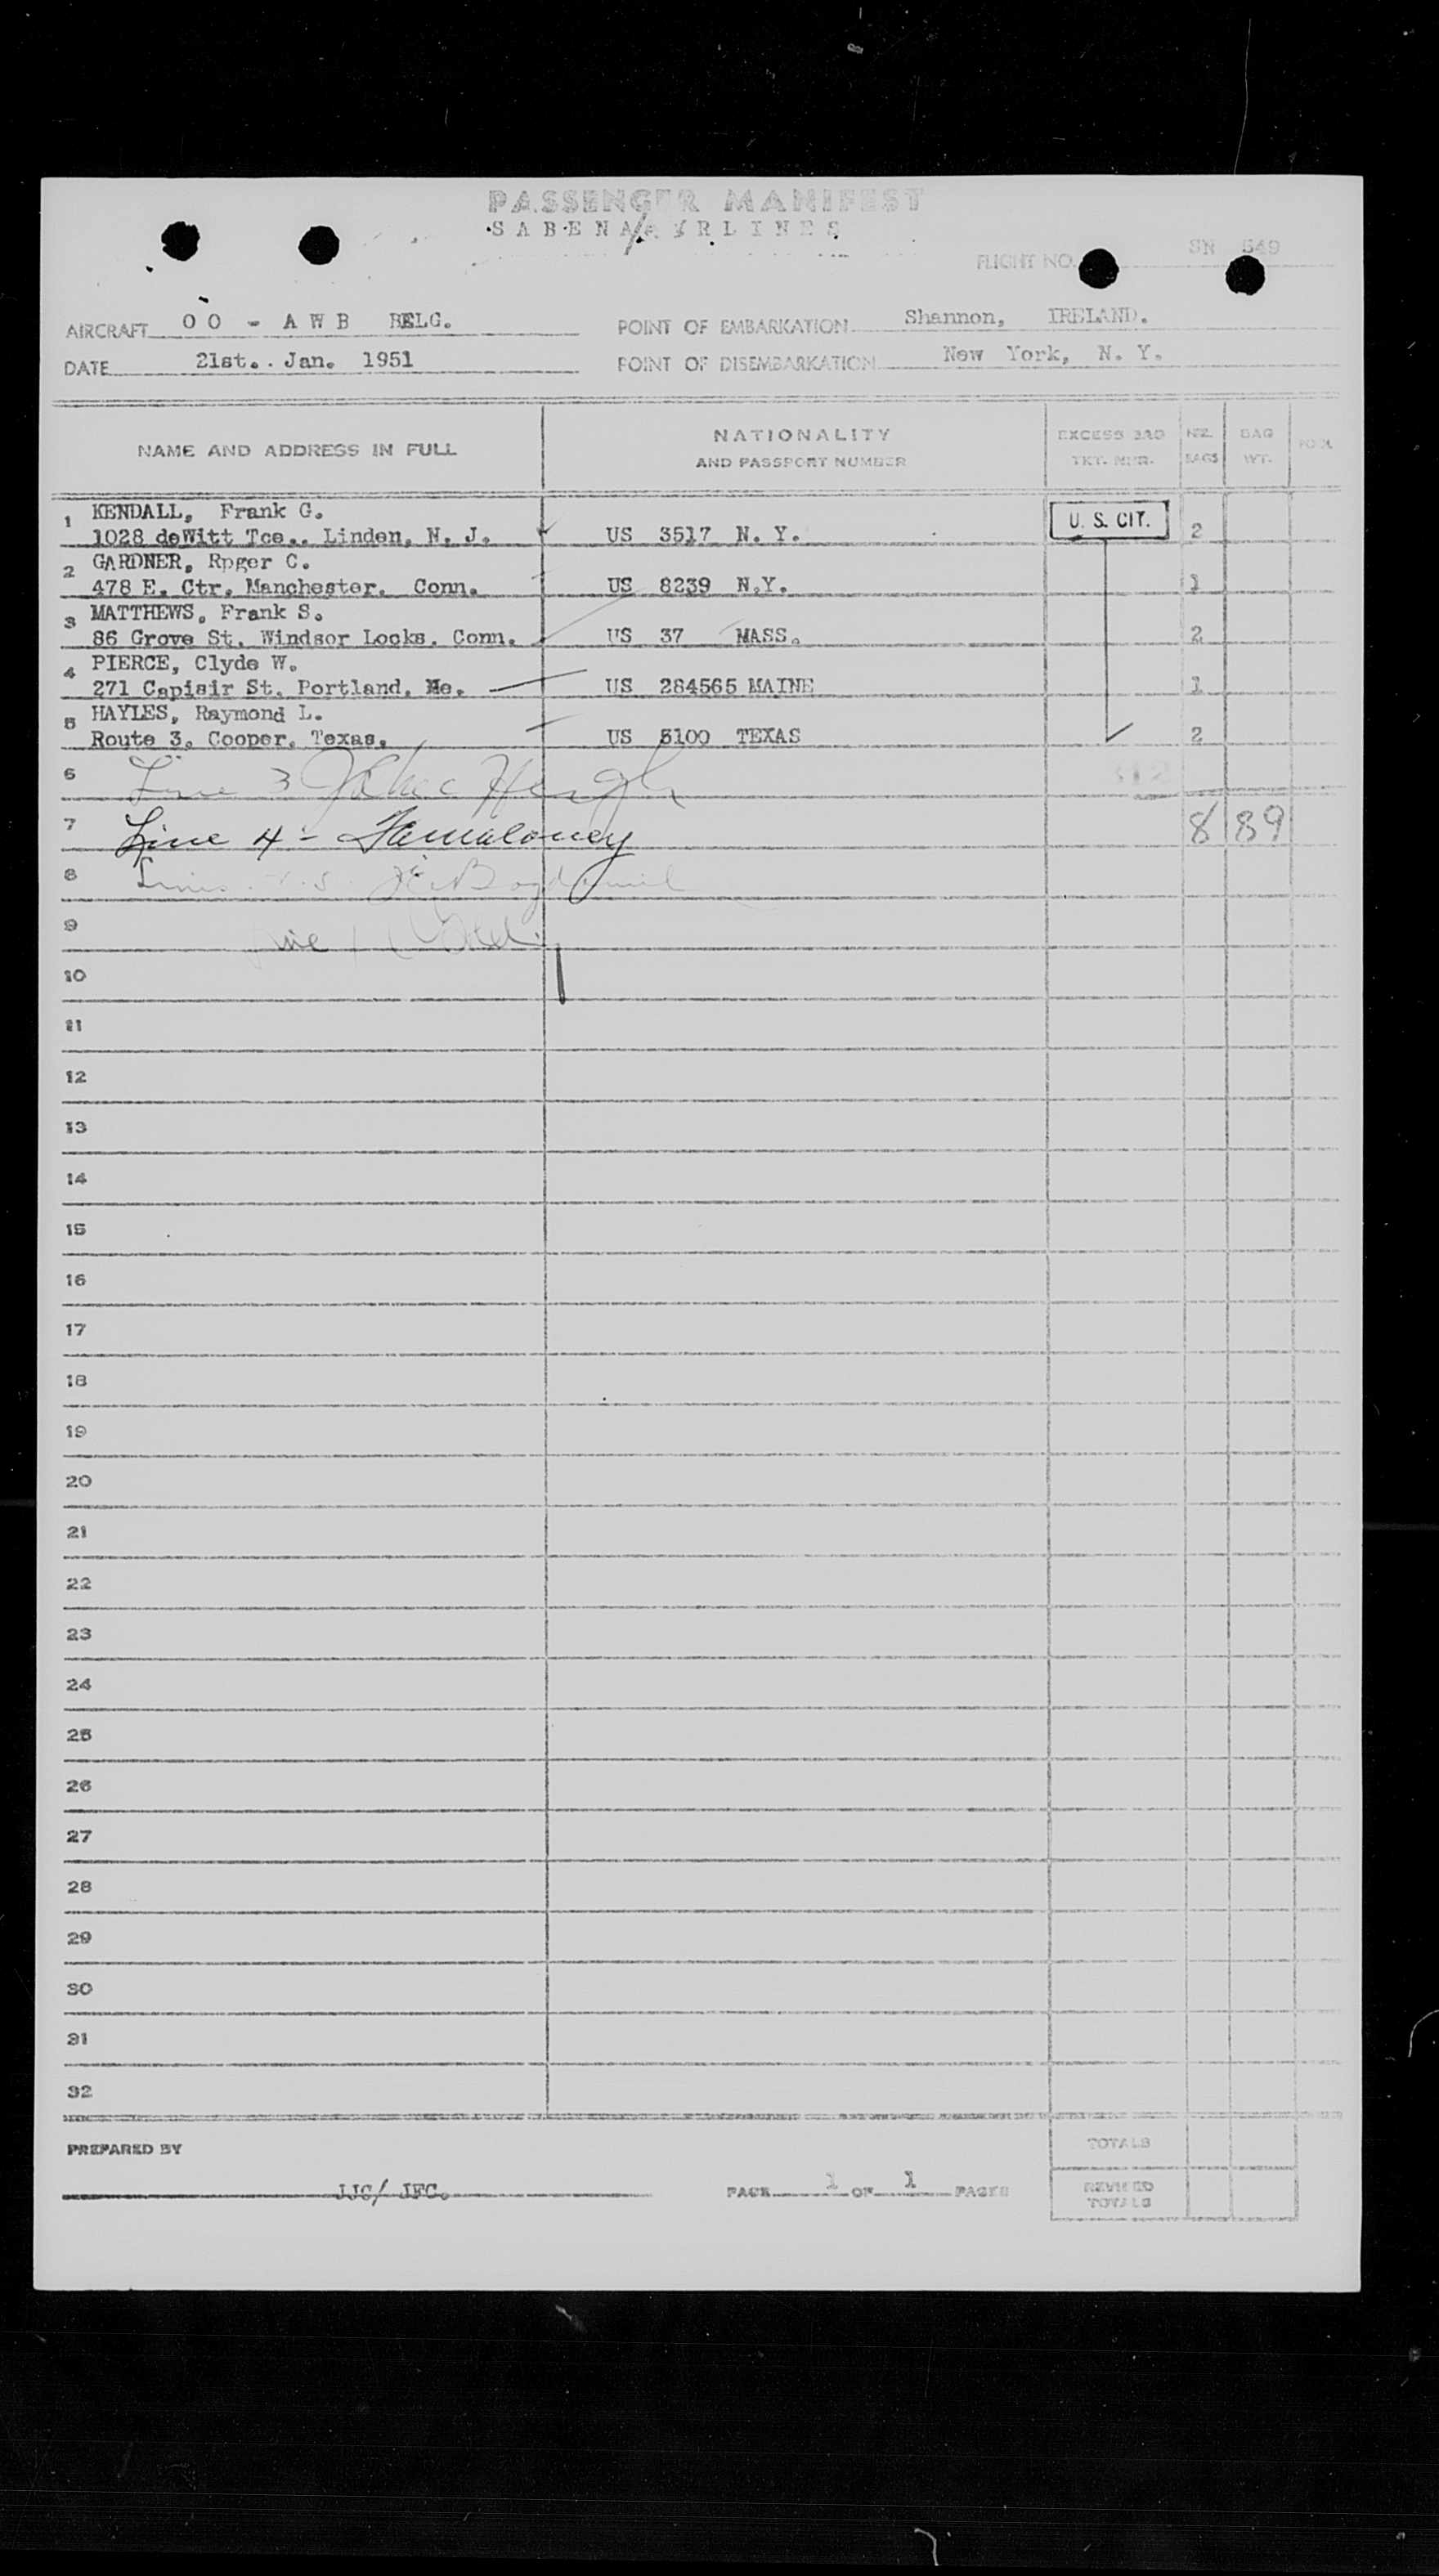 PASSENGER MANIFEST
SABENA AIRLINES
FLIGHT NO. SN 549
AIRCRAFT OO - AWB BELG. POINT OF EMBARKATION Shannon, IRELAND.
DATE 21st.. Jan. 1951 POINT OF DISEMBARKATION New York, N. Y.
NAME AND ADDRESS IN FULL NATIONALITY AND PASSPORT NUMBER EXCESS BAG TKT. NBR. NR. BAGS BAG WT.
1 KENDALL, Frank G.
1028 deWitt Tce.. Linden, N. J. US 3517 N. Y. U. S. CIT. 2
2 GARDNER, Rpger C.
478 E. Ctr. Manchester. Conn. US 8239 N.Y. 1
3 MATTHEWS, Frank S.
86 Grove St. Windsor Locks. Conn. US 37 MASS. 2
4 PIERCE, Clyde W.
271 Capisir St. Portland, Me. US 284565 MAINE 1
5 HAYLES, Raymond L.
Route 3, Cooper, Texas. US 5100 TEXAS 2
6 Line 3
7 Line 4 - 8 89
8
9 Line
10
11
12
13
14
15
16
17
18
19
20
21
22
23
24
25
26
27
28
29
30
31
32
PREPARED BY TOTALS
JJC/ JFC. PAGE 1 OF 1 PAGES REVISED TOTALS